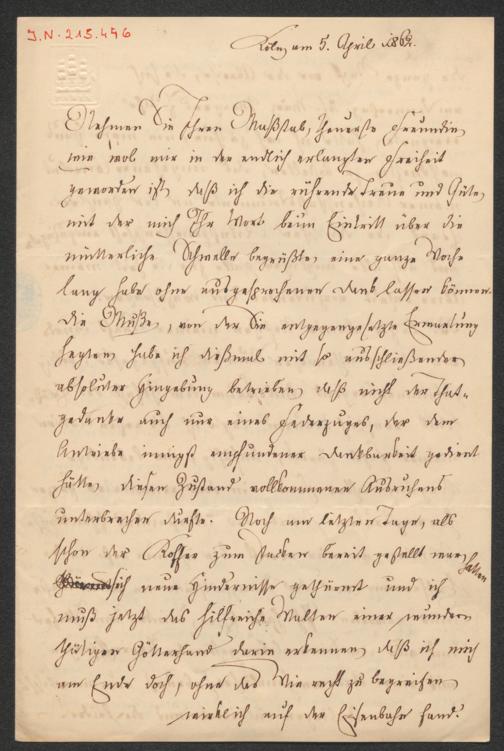 J.N. 213.496
Köln, am 5. April 1862.
Nehmen Sie Ihren Maßstab, theuerste Freundin,
wie wol mir in der endlich erlangten Freiheit
geworden ist, daß ich die rührende Treue und Güte,
mit der mich Ihr Wort beim Eintritt über die
mütterliche Schwelle begrüßte, eine ganze Woche
lang habe ohne ausgesprochenen Dank lassen können.
Die Muße, von der Sie entgegengesetzte Erwartung
hegten, habe ich dießmal mit so ausschließender
absoluter Hingebung betrieben, daß nicht der That-
gedanke auch nur eines Federzuges, der dem
Antriebe innigst empfundener Dankbarkeit gedient
hätte, diesen Zustand vollkommenen Ausruhens
unterbrechen durfte. Noch am letzten Tage, als
schon der Koffer zum Packen bereit gestellt war, hatten
sich neue Hindernisse gethürmt und ich
muß jetzt das hilfreiche Walten einer wunder-
thätigen Götterhand darin erkennen, daß ich mich
am Ende doch, ohne das Wie recht zu begreifen,
wirklich auf der Eisenbahn fand.